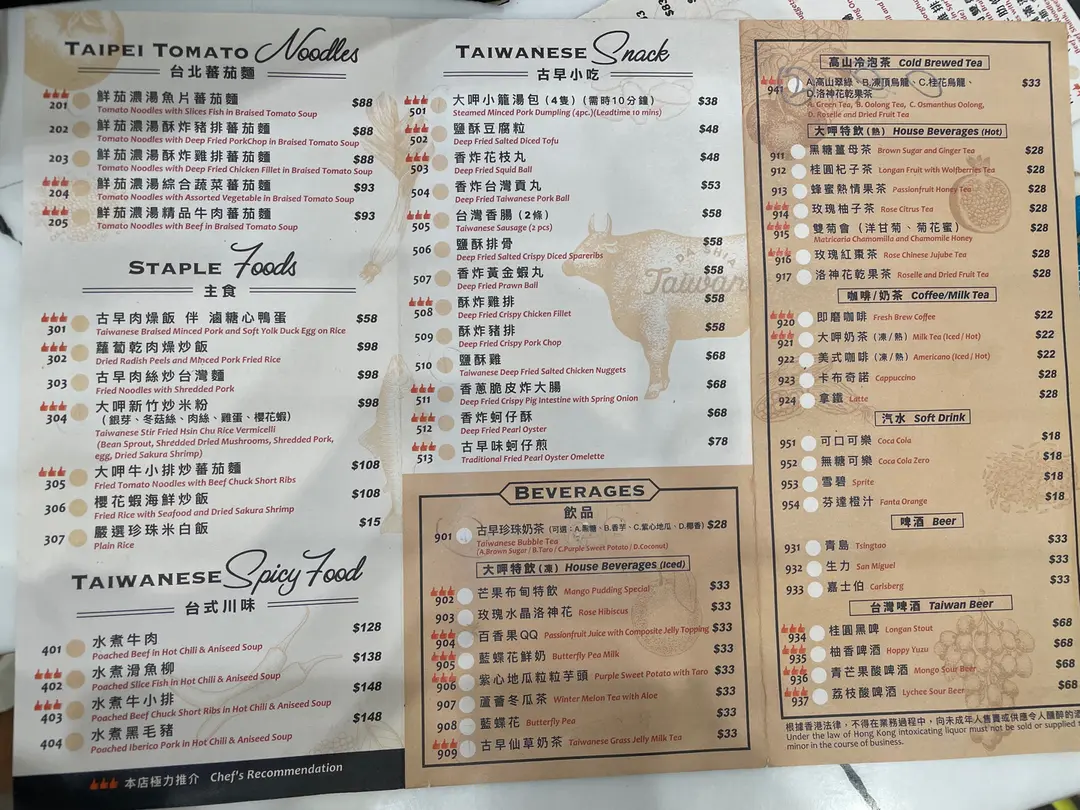 TAIPEI TOMATO Noodles
台北蕃茄麵
201 鮮茄濃湯魚片蕃茄麵 $88
Tomato Noodles with Slices Fish in Braised Tomato Soup
202 鮮茄濃湯酥炸豬排蕃茄麵 $88
Tomato Noodles with Deep Fried PorkChop in Braised Tomato Soup
203 鮮茄濃湯酥炸雞排蕃茄麵 $88
Tomato Noodles with Deep Fried Chicken Fillet in Braised Tomato Soup
204 鮮茄濃湯綜合蔬菜蕃茄麵 $93
Tomato Noodles with Assorted Vegetable in Braised Tomato Soup
205 鮮茄濃湯精品牛肉蕃茄麵 $93
Tomato Noodles with Beef in Braised Tomato Soup
STAPLE Foods
主食
301 古早肉燥飯 伴 滷糖心鴨蛋 $58
Taiwanese Braised Minced Pork and Soft Yolk Duck Egg on Rice
302 蘿蔔乾肉燥炒飯 $98
Dried Radish Peels and Minced Pork Fried Rice
303 古早肉絲炒台灣麵 $98
Fried Noodles with Shredded Pork
304 大呷新竹炒米粉 $98
（銀芽、冬菇絲、肉絲、雞蛋、櫻花蝦）
Taiwanese Stir Fried Hsin Chu Rice Vermicelli
(Bean Sprout, Shredded Dried Mushrooms, Shredded Pork,
egg, Dried Sakura Shrimp)
305 大呷牛小排炒蕃茄麵 $108
Fried Tomato Noodles with Beef Chuck Short Ribs
306 櫻花蝦海鮮炒飯 $108
Fried Rice with Seafood and Dried Sakura Shrimp
307 嚴選珍珠米白飯 $15
Plain Rice
TAIWANESE Spicy Food
台式川味
401 水煮牛肉 $128
Poached Beef in Hot Chili & Aniseed Soup
402 水煮滑魚柳 $138
Poached Slice Fish in Hot Chili & Aniseed Soup
403 水煮牛小排 $148
Poached Beef Chuck Short Ribs in Hot Chili & Aniseed Soup
404 水煮黑毛豬 $148
Poached Iberico Pork in Hot Chili & Aniseed Soup
本店極力推介 Chef's Recommendation
TAIWANESE Snack
古早小吃
501 大呷小籠湯包 (4隻) (需時10分鐘) $38
Steamed Minced Pork Dumpling (4pc.)(Leadtime 10 mins)
502 鹽酥豆腐粒 $48
Deep Fried Salted Diced Tofu
503 香炸花枝丸 $48
Deep Fried Squid Ball
504 香炸台灣貢丸 $53
Deep Fried Taiwanese Pork Ball
505 台灣香腸 (2條) $58
Taiwanese Sausage (2 pcs)
506 鹽酥排骨 $58
Deep Fried Salted Crispy Diced Spareribs
507 香炸黃金蝦丸 $58
Deep Fried Prawn Ball
508 酥炸雞排 $58
Deep Fried Crispy Chicken Fillet
509 酥炸豬排 $58
Deep Fried Crispy Pork Chop
510 鹽酥雞 $68
Taiwanese Deep Fried Salted Chicken Nuggets
511 香蔥脆皮炸大腸 $68
Deep Fried Crispy Pig Intestine with Spring Onion
512 香炸蚵仔酥 $68
Deep Fried Pearl Oyster
513 古早味蚵仔煎 $78
Traditional Fried Pearl Oyster Omelette
DA SHIA
Taiwan
BEVERAGES
飲品
901 古早珍珠奶茶 (可選：A.黑糖、B.香芋、C.紫心地瓜、D.椰香) $28
Taiwanese Bubble Tea
(A.Brown Sugar / B.Taro / C.Purple Sweet Potato / D.Coconut)
大呷特飲 (凍) House Beverages (Iced)
902 芒果布甸特飲 Mango Pudding Special $33
903 玫瑰水晶洛神花 Rose Hibiscus $33
904 百香果QQ Passionfruit Juice with Composite Jelly Topping $33
905 藍蝶花鮮奶 Butterfly Pea Milk $33
906 紫心地瓜粒粒芋頭 Purple Sweet Potato with Taro $33
907 蘆薈冬瓜茶 Winter Melon Tea with Aloe $33
908 藍蝶花 Butterfly Pea $33
909 古早仙草奶茶 Taiwanese Grass Jelly Milk Tea $33
高山冷泡茶 Cold Brewed Tea
941 A.高山翠綠、B.凍頂烏龍、C.桂花烏龍、 $33
D.洛神花乾果茶
A. Green Tea, B. Oolong Tea, C. Osmanthus Oolong,
D. Roselle and Dried Fruit Tea
大呷特飲 (熱) House Beverages (Hot)
911 黑糖薑母茶 Brown Sugar and Ginger Tea $28
912 桂圓杞子茶 Longan Fruit with Wolfberries Tea $28
913 蜂蜜熱情果茶 Passionfruit Honey Tea $28
914 玫瑰柚子茶 Rose Citrus Tea $28
915 雙菊會（洋甘菊、菊花蜜） $28
Matricaria Chamomilla and Chamomile Honey
916 玫瑰紅棗茶 Rose Chinese Jujube Tea $28
917 洛神花乾果茶 Roselle and Dried Fruit Tea $28
咖啡/奶茶 Coffee/Milk Tea
920 即磨咖啡 Fresh Brew Coffee $22
921 大呷奶茶 (凍/熱) Milk Tea (Iced / Hot) $22
922 美式咖啡 (凍/熱) Americano (Iced / Hot) $22
923 卡布奇諾 Cappuccino $28
924 拿鐵 Latte $28
汽水 Soft Drink
951 可口可樂 Coca Cola $18
952 無糖可樂 Coca Cola Zero $18
953 雪碧 Sprite $18
954 芬達橙汁 Fanta Orange $18
啤酒 Beer
931 青島 Tsingtao $33
932 生力 San Miguel $33
933 嘉士伯 Carlsberg $33
台灣啤酒 Taiwan Beer
934 桂圓黑啤 Longan Stout $68
935 柚香啤酒 Hoppy Yuzu $68
936 青芒果酸啤酒 Mango Sour Beer $68
937 荔枝酸啤酒 Lychee Sour Beer $68
根據香港法律，不得在業務過程中，向未成年人售賣或供應令人醺醉的
Under the law of Hong Kong intoxicating liquor must not be sold or supplied
minor in the course of business.